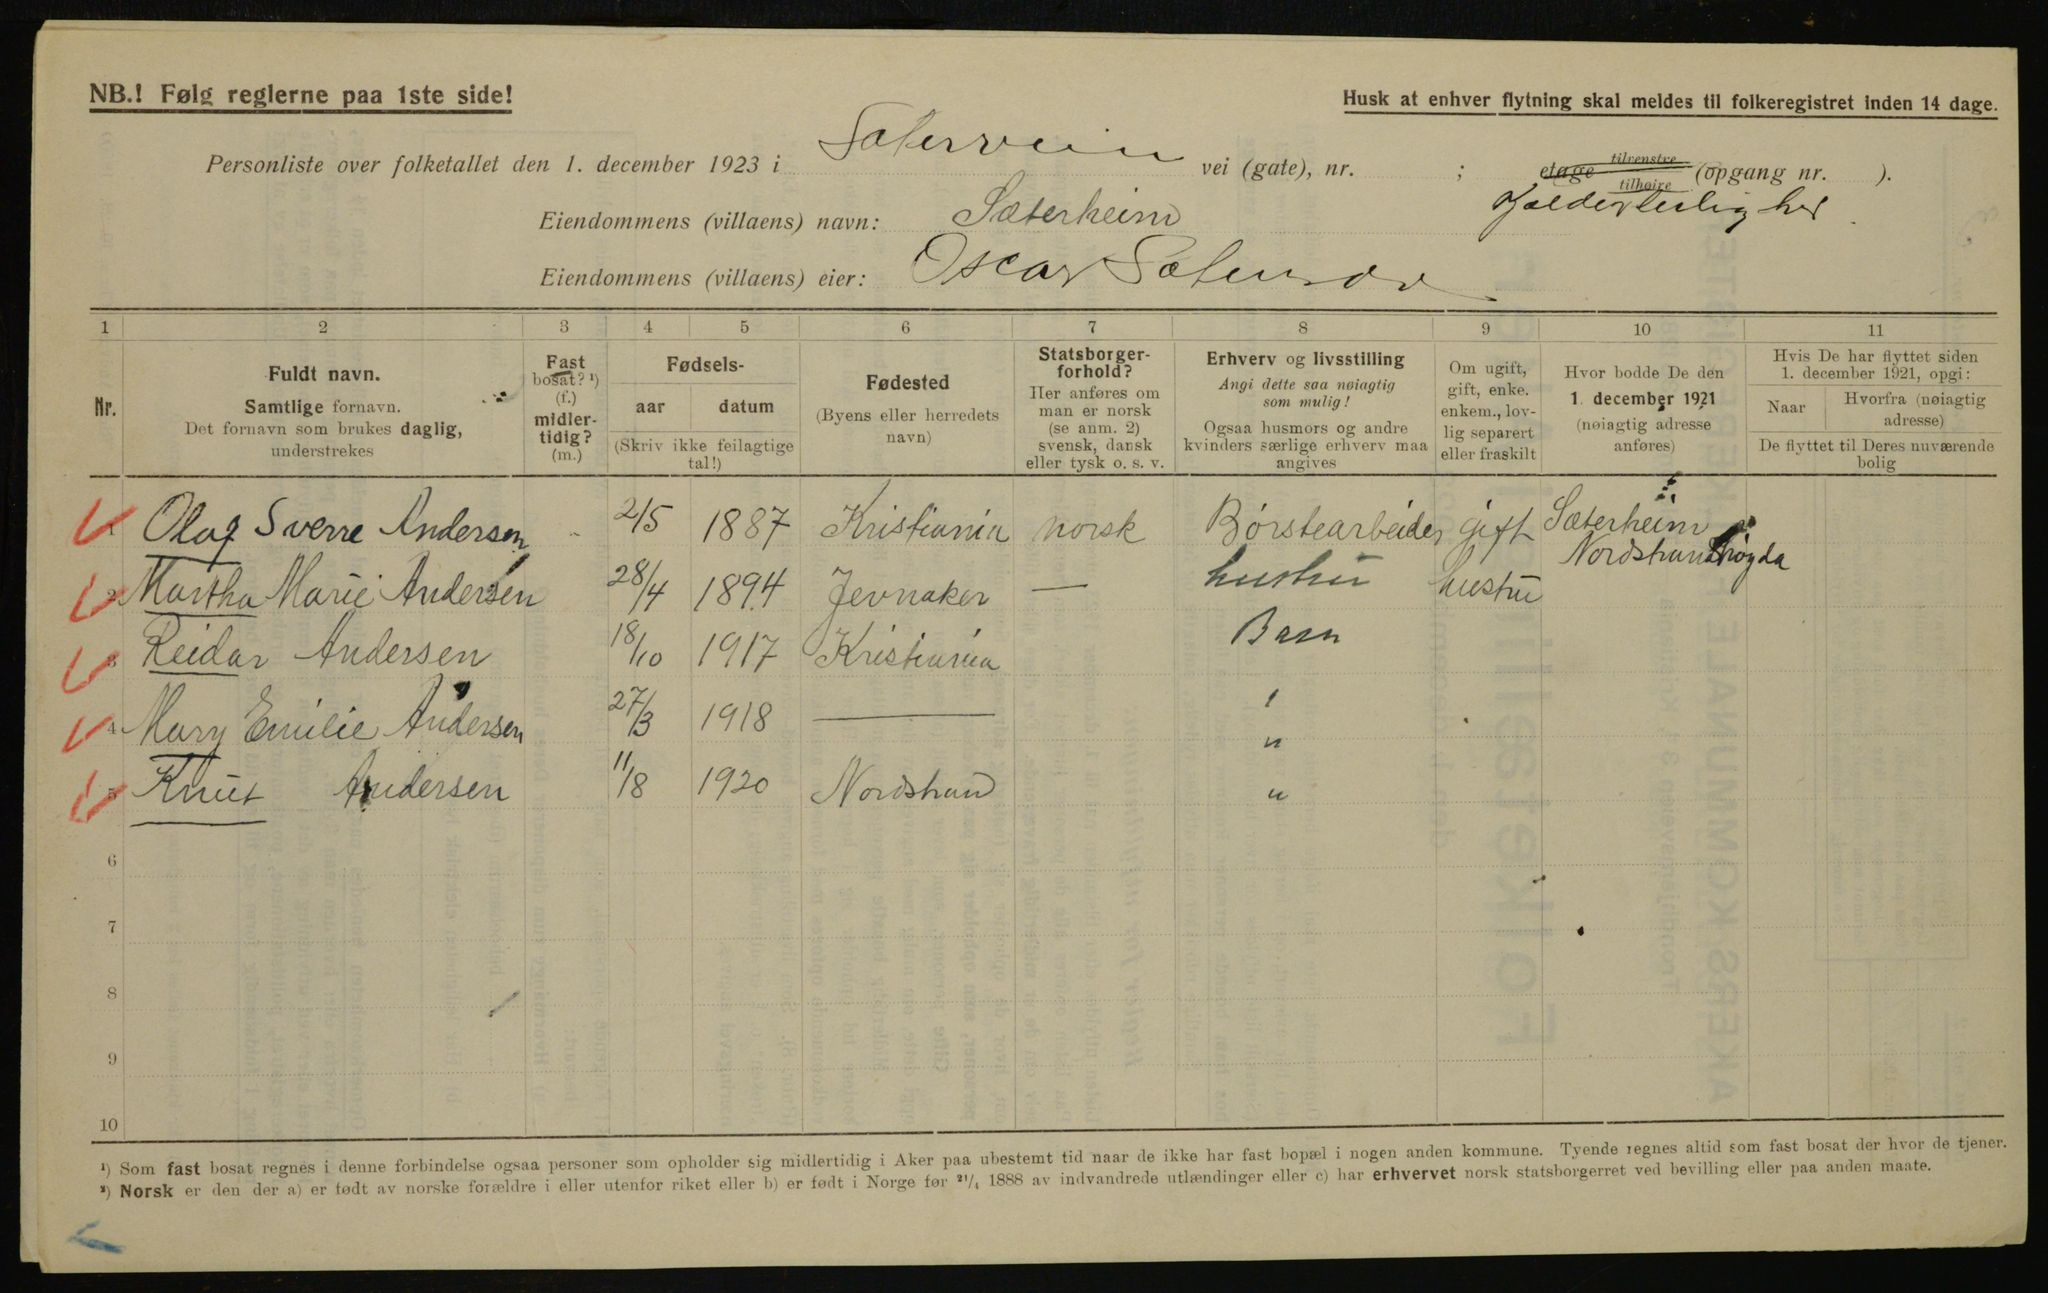 NB.! Følg reglerne paa 1ste side!
Husk at enhver flytning skal meldes til folkeregistret inden 14 dage.
Personliste over folketallet den 1. december 1923 i Sæterveien vei (gate), nr. ; etage tilvenstre tilhøire (opgang nr. ).
Eiendommens (villaens) navn: Sæterheim
Eiendommens (villaens) eier: Oscar
1 2 3 4 5 6 7 8 9 10 11
Nr.
Fuldt navn.
Samtlige fornavn.
Det fornavn som brukes daglig,
understrekes
Fast
bosat? ¹)
(f.)
midler-
tidig?
(m.)
Fødsels-
aar datum
(Skriv ikke feilagtige
tal!)
Fødested
(Byens eller herredets
navn)
Statsborger-
forhold?
Her anføres om
man er norsk
(se anm. 2)
svensk, dansk
eller tysk o. s. v.
Erhverv og livsstilling
Angi dette saa nøiagtig
som mulig!
Ogsaa husmors og andre
kvinders særlige erhverv maa
angives
Om ugift,
gift, enke.
enkem., lov-
lig separert
eller fraskilt
Hvor bodde De den
1. december 1921
(nøiagtig adresse
anføres)
Hvis De har flyttet siden
1. december 1921, opgi:
Naar
Hvorfra (nøiagtig
adresse)
De flyttet til Deres nuværende
bolig
1 Olaf Sverre Andersen 2/5 1887 Kristiania norsk Børstearbeider gift Sæterheim
Nordstrandhøgda
2 Martha Marie Andersen 28/4 1894 Jevnaker — hustru hustru
3 Reidar Andersen 18/10 1917 Kristiania Barn
4 Mary Emilie Andersen 27/3 1918 — "
5 Knut Andersen 11/8 1920 Nordstrand "
6
7
8
9
10
¹) Som fast bosat regnes i denne forbindelse ogsaa personer som opholder sig midlertidig i Aker paa ubestemt tid naar de ikke har fast bopæl i nogen anden kommune. Tyende regnes altid som fast bosat der hvor de tjener.
²) Norsk er den der a) er født av norske forældre i eller utenfor riket eller b) er født i Norge før ²¹/₄ 1888 av indvandrede utlændinger eller c) har erhvervet norsk statsborgerret ved bevilling eller paa anden maate.